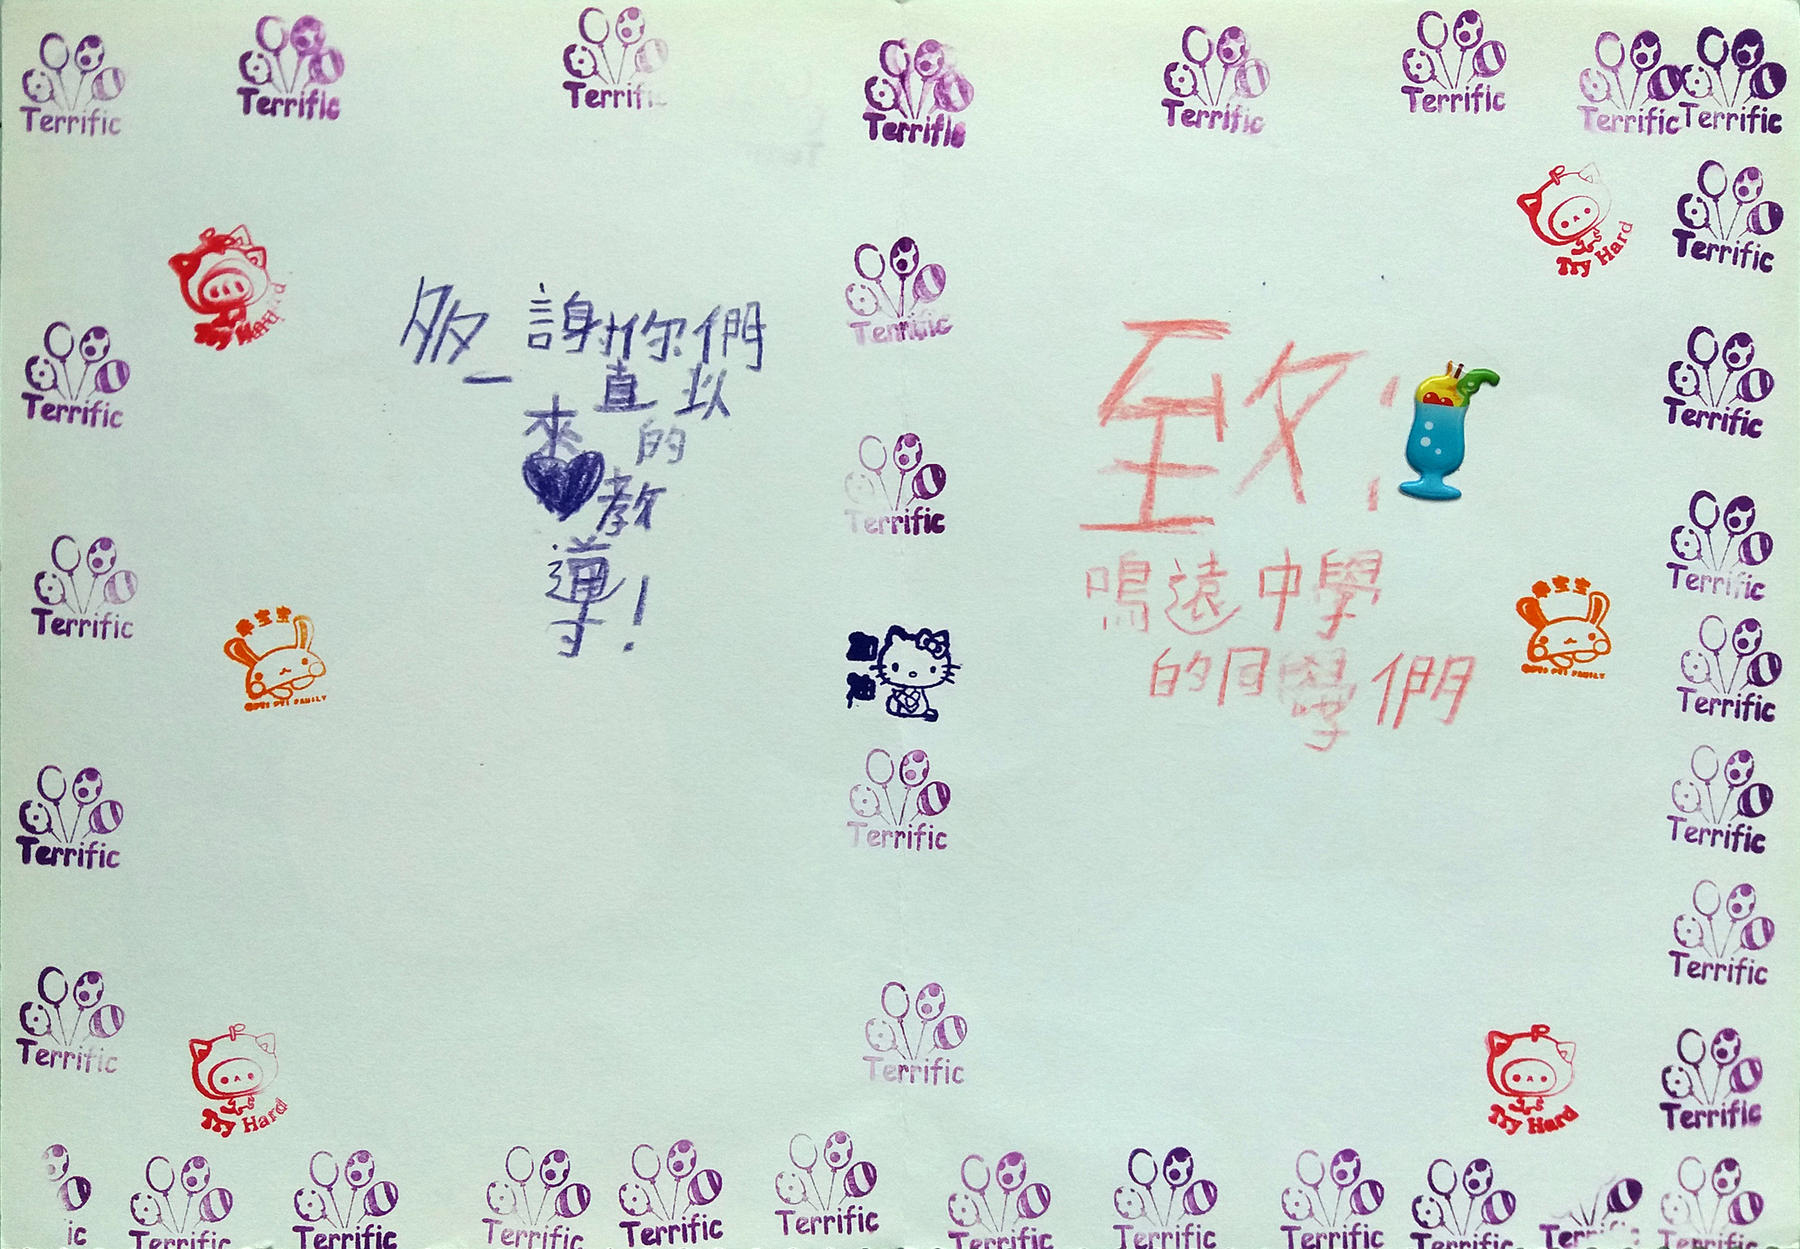 Terrific
Terrific
Terrific
Terrific
Terrific
Terrific
Terrific
Terrific
Try Hard
多謝你們
一直以
來的
教
導!
Terrific
Terrific
Terrific
Terrific
Try Hard
Terrific
Terrific
Try Hard
Terrific
Terrific
Terrific
Terrific
致:
鳴遠中學
的同學們
Try Hard
Terrific
Terrific
Terrific
Terrific
Terrific
Terrific
Terrific
ic
Terrific
Terrific
Terrific
Terrific
Terrific
Terrific
Terrific
Terrific
Terrific
Terrific
Terrific